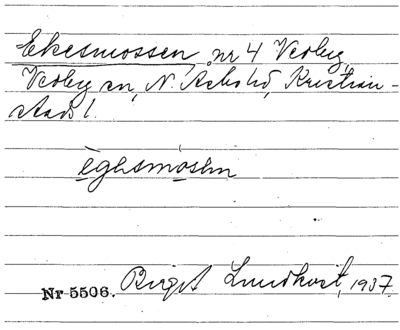 Ekesmossen, nr 4 Verby,
Verby sn, N. Åsbo hd, Kristian-
stads l.
èghsmósen
Nr 5506. Birgit Lundkvist, 1937.